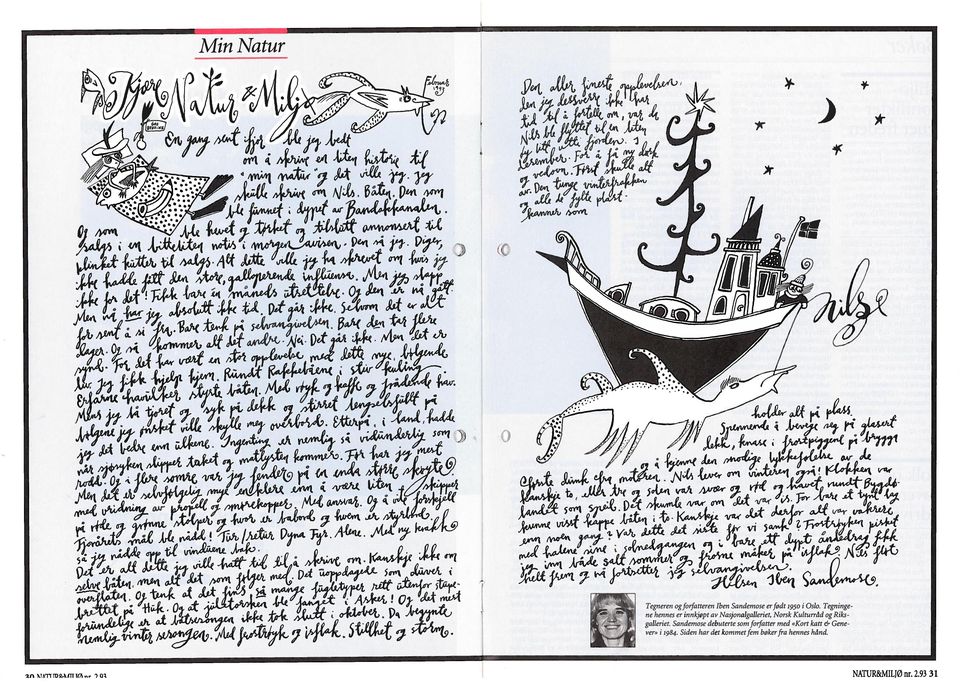 Min Natur
Kjære
Natur & Miljø
Februar
1993
En gang sent ifjor ble jeg bedt
om å skrive en liten historie til
"min natur" og det ville jeg. Jeg
skulle skrive om Nils. Båten. Den som
ble funnet i dypet av Bandakkanalen.
Og som ble hevet og tørket og tilslutt annonsert til
salgs i en bitteliten notis i morgenavisen. Den så jeg. Diger,
blinket kutter til salgs. Alt dette ville jeg ha skrevet om hvis jeg
ikke hadde fått den store, galopperende influensa. Men jeg slapp
ikke for det! Fikk bare en måneds utsettelse. Og den er nå gått.
Men nå har jeg absolutt ikke tid. Det går ikke. Selvom det er alt
for sent å si fra. Bare tenk på selvangivelsen. Bare den tar flere
dager. Og så kommer alt det andre. Nei. Det går ikke. Men det er
synd. For det har vært en stor opplevelse med dette nye, bølgende
liv. Jeg fikk hjelp hjem. Rundt Rakkebåene i stiv kuling.
Erfarne havulker styrte båten. Med røyk og kaffe og frådende hav.
Mens jeg lå tjoret og syk på dekk og stirret lengselsfullt på
bølgene jeg ønsket ville skylle meg overbord. Etterpå, i land, hadde
jeg det bedre enn ulkene. Ingenting er nemlig så vidunderlig som
når sjøsyken slipper taket og matlysten kommer. Før har jeg mest
rodd. Og i flere somre var jeg fender på en enda større skøyte.
Men det er selvfølgelig mye enklere enn å være liten skipper
med vridning av propell og smørekopper. Med ansvar. Og å vite forskjell
på røde og grønne stolper og hvor er babord og hvem er styrbord.
Fjorårets mål ble nådd! Tur/retur Dyna Fyr. Alene. Med ny knekk
så jeg nådde opp til vinduene bak.
Det er alt dette jeg ville hatt tid til å skrive om. Kanskje ikke om
selve båten, men alt det som følger med. Det uoppdagede som duver i
overflaten. Og tenk at det fins så mange fugletyper rett utenfor stupe-
brettet på Huk. Og at julstorsken ble fanget i Asker! Og det mest
grundelige er at båtsesongen ikke tok slutt i oktober. Da begynte
nemlig vintersesongen. Med frostrøyk og isflak. Stillhet og storm.
Den aller fineste opplevelsen,
den jeg dessverre ikke har
tid til å fortelle om, var da
Nils ble flyttet til en liten
by litt ytti fjorden. I
desember. For å få ny dørk
og vedovn. Først skulle alt
av. Den tunge vinterfrakken
og alle de fylte plast-
kanner som
nilsje
holder alt på plass.
Spennende å bevege seg på glasert
dekk, knase i frostpiggene på brygga
og å kjenne den modige lykkefølelse av de
første dunk fra motoren. Nils lever om vinteren også! Klokken var
kanskje to, eller tre og solen var svær og rød og havet rundt Bygdø-
landet som speil. Det skumle var om det var is. For bare et tynt lag
kunne visst kappe båten i to. Kanskje var det derfor alt var vakrere
enn noen gang? Var dette det siste før vi sank? Frostrøyken pisket
med halene sine i solnedgangen og i bare ett dypt åndedrag fikk
jeg inn både salt sommer og frosne måker på isflak. Nils fløt
helt frem og nå fortsetter jeg selvangivelsen.
Hilsen Iben Sandemose.
Tegneren og forfatteren Iben Sandemose er født 1950 i Oslo. Tegninge-
ne hennes er innkjøpt av Nasjonalgalleriet, Norsk Kulturråd og Riks-
galleriet. Sandemose debuterte som forfatter med «Kort katt & Gene-
ver» i 1984. Siden har det kommet fem bøker fra hennes hånd.
30 NATUR&MILJØ nr. 2.93
NATUR&MILJØ nr. 2.93 31